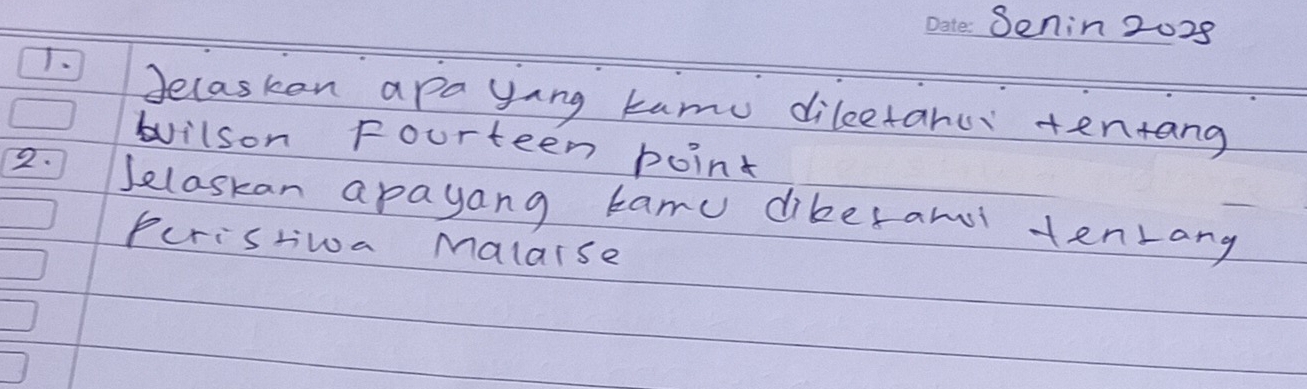 Date: Senin 2028
1. Jelaskan apa yang kamu diketahui tentang
Wilson Fourteen point
2. Jelaskan apayang kamu diketahui tentang
Peristiwa Malaise